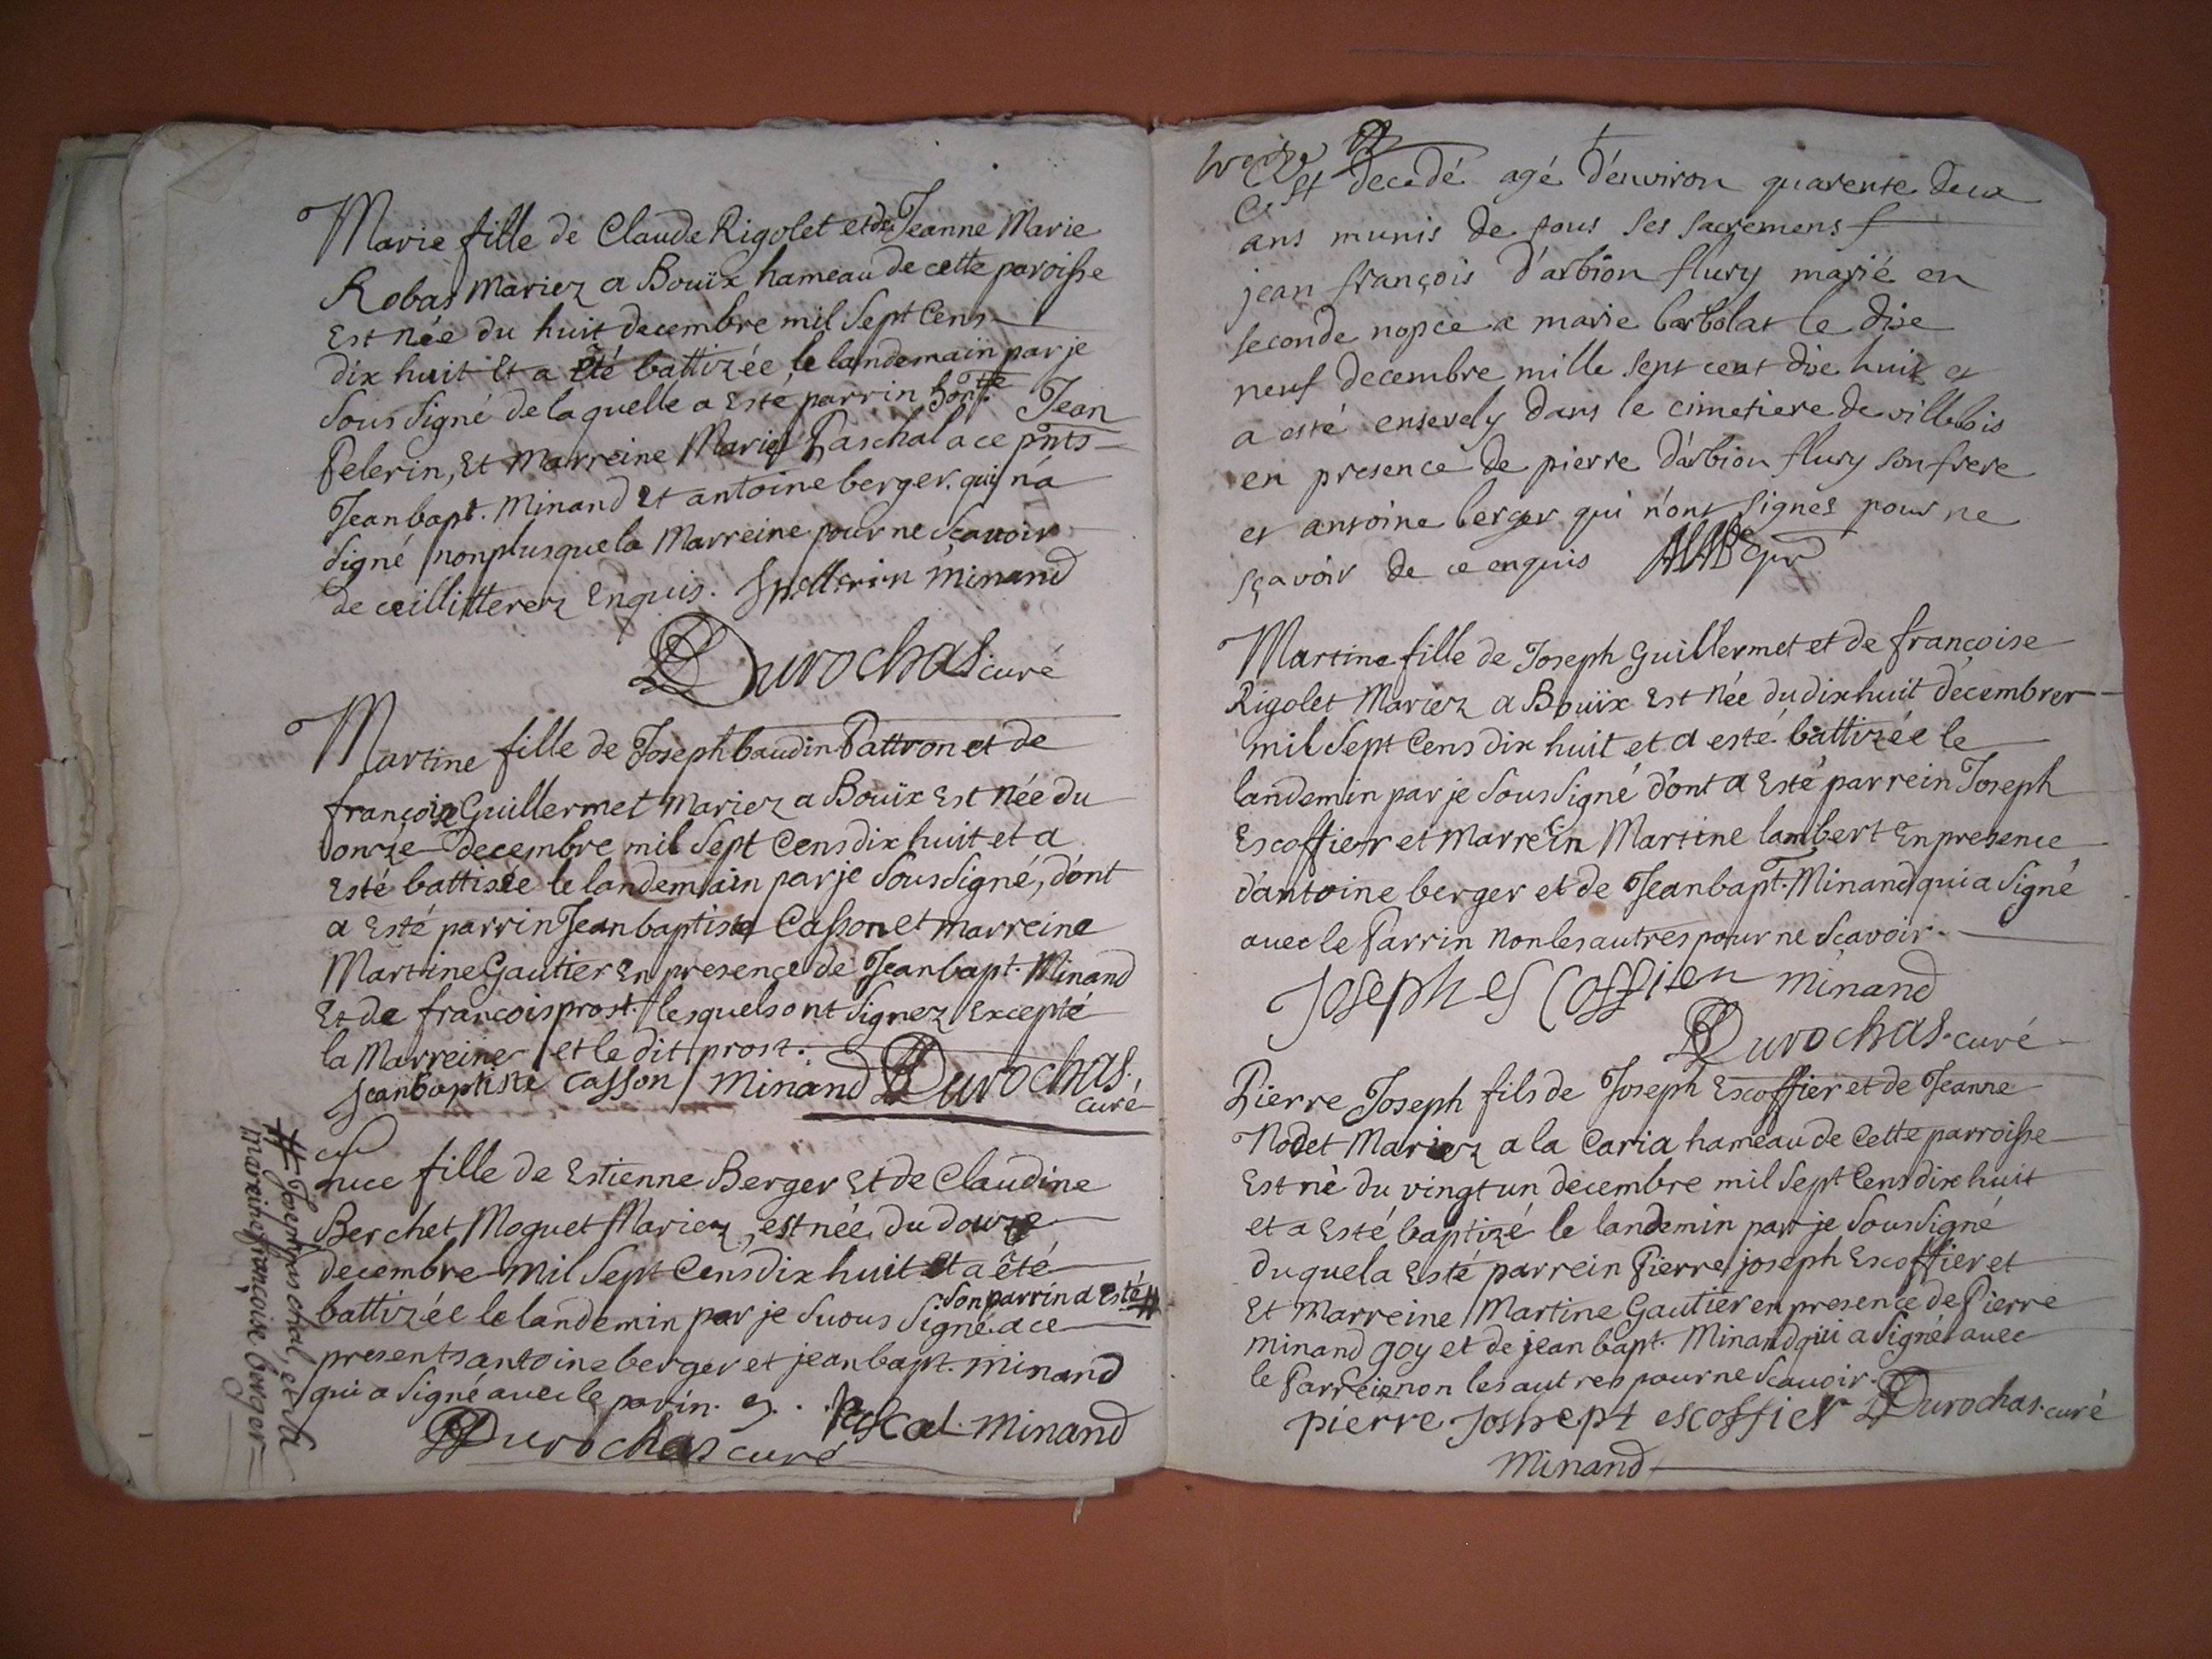 Marie fille de Claude Rigolet et de Jeanne Marie
Robas Mariez a Bouïx hameau de cette paroisse
Est Née du huit decembre mil Sept Cens
dix huit Et a eté battizée le landemain par je
Sous Signé de la quelle a Esté parrin hon.te Jean
Pelerin, Et Marreine Marie Paschal a ce pnts
Jean bapt. Minand Et antoine berger. qui n'a
Signé non plus que la Marreine pour ne Scavoir
de ce illitterez Enquis. J pellerin Minand
Durochas curé
Martine fille de Joseph baudin Pattron et de
françoise Guillermet Mariez a Bouïx Est Née du
onze decembre mil Sept Cens dix huit et a
Esté battisée le landemain par je Sous Signé, d'ont
a Esté parrin Jean baptiste Casson et marreine
Martine Gautier En presence de Jean bapt. Minand
Et de francois prost. lesquels ont Signez Excepté
la Marreine et le dit prost.
Jean baptiste Casson Minand Durochas.
curé
Luce fille de Estienne Berger Et de Claudine
Berchet Moguet Mariez, est née du douze
decembre Mil Sept Cens dix huit Et a été
battizée le landemin par je Suous Signé. Son parrin a Esté # a ce
presents antoine berger et jean bapt. Minand
qui a Signé avec le parin.
Pascal Minand
Durochas curé
# Joseph paschal, et Sa
marreine françoise berger
treize
Est decedé agé d'environ quarente deux
ans munis de tous ses sacremens
jean françois d'arbion flury marié en
seconde nopce a marie barbolat le dixe
neuf decembre mille sept cent dixe huit et
a esté ensevely dans le cimetiere de villebois
en presence de pierre d'arbion flury son frere
et antoine berger qui n'ont signés pour ne
sçavoir de ce enquis
Martine fille de Joseph Guillermet et de françoise
Rigolet Mariez a Bouïx Est Née du dix huit decembrer
mil Sept Cens dix huit et a esté battizée le
landemin par je Sous Signé d'ont a Esté parrein Joseph
Escoffier et Marrein Martine lambert En presence
d'antoine berger et de Jean bapt. Minand qui a Signé
avec le Parrin Non les autres pour ne Scavoir.
Joseph escoffier Minand
Durochas. curé
Pierre Joseph fils de Joseph Escoffier et de Jeanne
Nodet Mariez a la Caria hameau de Cette parroisse
Est né du vingt un decembre mil Sept Cens dix huit
et a Esté baptizé le landemin par je Sous Signé
du quel a Esté parrein Pierre joseph Escoffier et
Et Marreine Martine Gautier en presence de Pierre
minand goy et de jean bapt. Minand qui a Signé avec
le Parrein non les autres pour ne Scavoir.
pierre Josnept escoffier Durochas. curé
Minand